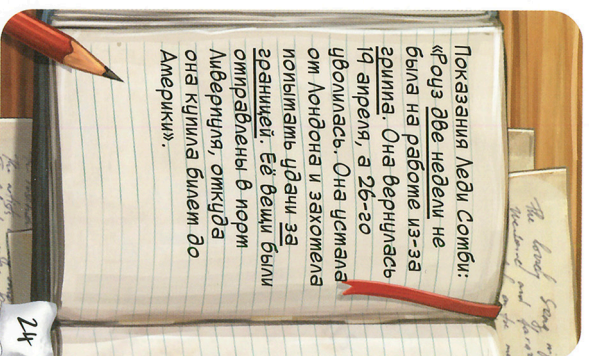 Показания Леди Сотби:
«Роуз две недели не
была на работе из-за
гриппа. Она вернулась
19 апреля, а 26-го
уволилась. Она устала
от Лондона и захотела
попытать удачи за
границей. Её вещи были
отправлены в порт
Ливерпуля, откуда
она купила билет до
Америки».
24
The lovely